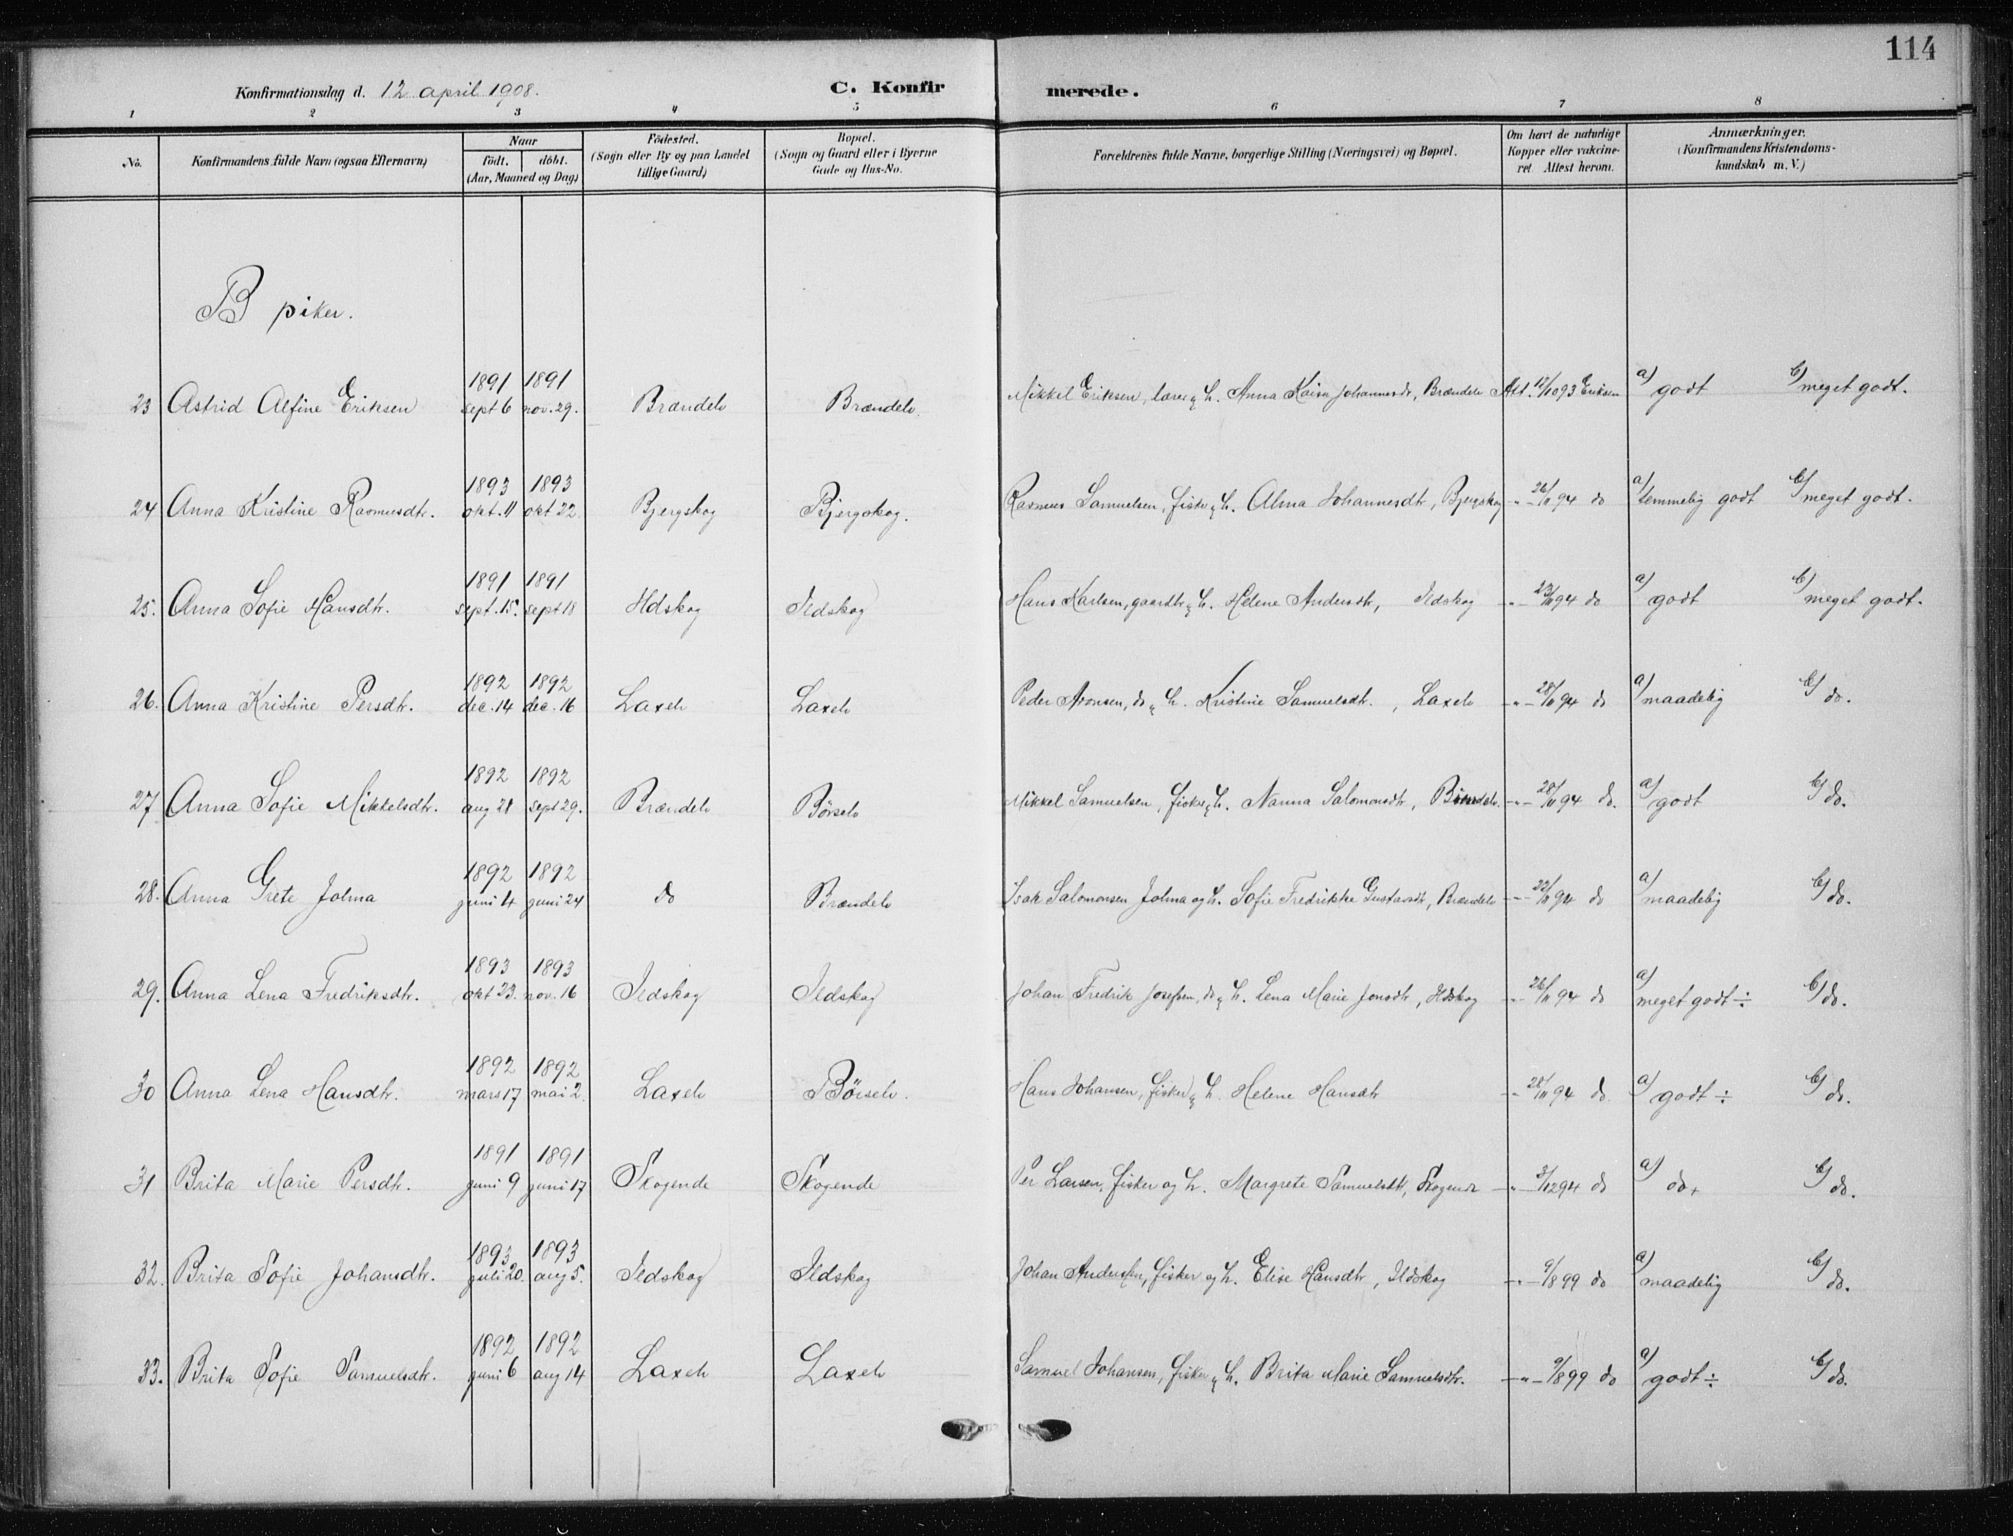 114
Konfirmationsdag d. 12 april 1908. C. Konfirmerede.
1 2 3 4 5 6 7 8
No. Konfirmandens fulde Navn (ogsaa Efternavn) Naar født. døbt. (Aar, Maaned og Dag) Fødested. (Sogn eller By og paa Landet tillige Gaard) Bopæl. (Sogn og Gaard eller i Byerne Gade og Hus-No. Forældrenes fulde Navne, borgerlige Stilling (Næringsvei) og Bopæl. Om havt de naturlige Kopper eller vakcineret Attest herom. Anmærkninger. (Konfirmandens Kristendomskundskab m. V.)
B piker.
23 Astrid Alfine Eriksen 1891 sept 6 1891 nov. 29. Brændelv Brændelv. Mikkel Eriksen, lærer og h. Anna Kaisa Johannesdr, Brændelv Att. 12/10 93 Eriksen a) godt b) meget godt.
24 Anna Kristine Rasmusdtr. 1893 okt. 11 1893 okt 22 Bjergskog Bjergskog. Rasmus Samuelsen, fisker og h. Alma Johannesdtr, Bjergskog -"- 26/11 94 do a) temmelig godt b) meget godt.
25. Anna Sofie Hansdtr. 1891 sept. 15. 1891 sept 18 Ildskog Ildskog Hans Karlsen, gaardbr. og h. Helene Andersdtr, Ildskog -"- 23/11 94 do a) godt b) meget godt.
26. Anna Kristine Persdtr. 1892 dec. 14 1892 dec. 16 Laxelv Laxelv Peder Aronsen, do og h. Kristine Samuelsdtr., Laxelv -"- 28/11 94 do a) maadelig b) do.
27 Anna Sofie Mikkelsdtr. 1892 aug 28 1892 sept 29. Brændelv Børselv Mikkel Samuelsen, fisker og h. Nanna Salomonsdtr, Brændelv. -"- 28/11 94 do. a) godt b) do.
28. Anna Grete Jolma 1892 juni 4 1892 juni 24 do Brændelv Isak Salomonsen Jolma og h. Sofie Fredrikke Gustavsdtr, Brændelv -"- 22/11 94 do a) maadelig b) do.
29. Anna Lena Fredriksdtr. 1893 okt 23. 1893 nov. 16 Ildskog Ildskog Johan Fredrik Josefsen, do og h. Lena Marie Jonsdtr, Ildskog -"- 26/11 94 do a) meget godt ÷ b) do.
30 Anna Lena Hansdtr. 1892 mars 17 1892 mai 2. Laxelv Børselv. Hans Johansen, fisker og h. Helene Hansdtr -"- 28/11 94 do a) godt ÷ b) do.
31 Brita Marie Persdtr. 1891 juni 9 1891 juni 17 Skogende Skogende Per Larsen, fisker og h. Margrete Samuelsdtr, Skogende -"- 3/12 94 do a) do + b) do.
32. Brita Sofie Johansdtr. 1893 juli 20. 1893 aug 5. Ildskog Ildskog Johan Andersen, fisker og h. Elise Hansdtr, Ildskog -"- 9/8 99 do a) maadelig b) do.
33. Brita Sofie Samuelsdtr. 1892 juni 6 1892 aug 14 Laxelv Laxelv Samuel Johansen, fisker og h. Brita Marie Samuelsdtr. -"- 9/8 99 do a) godt ÷ b) do.